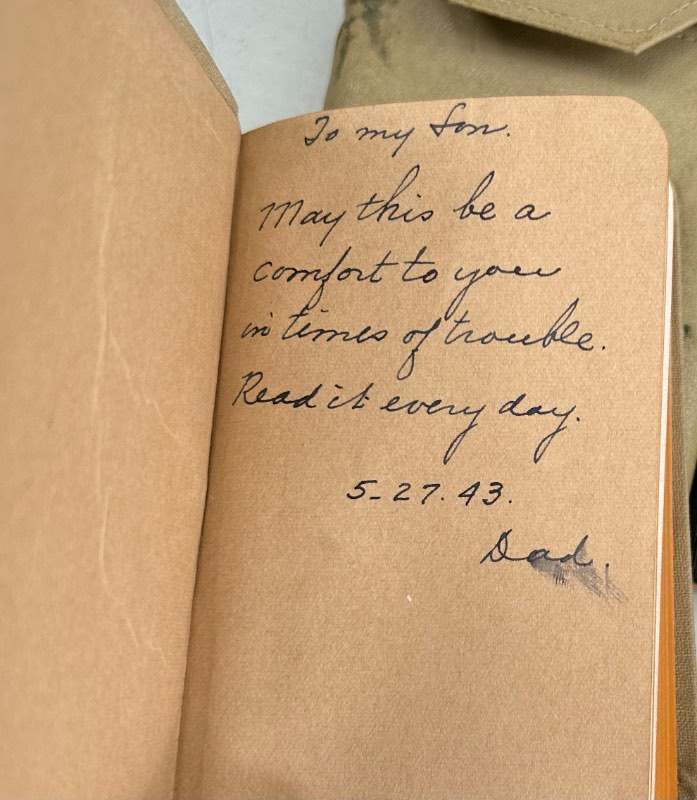 To my Son.
May this be a
comfort to you
in times of trouble.
Read it every day.
5-27.43.
Dad.